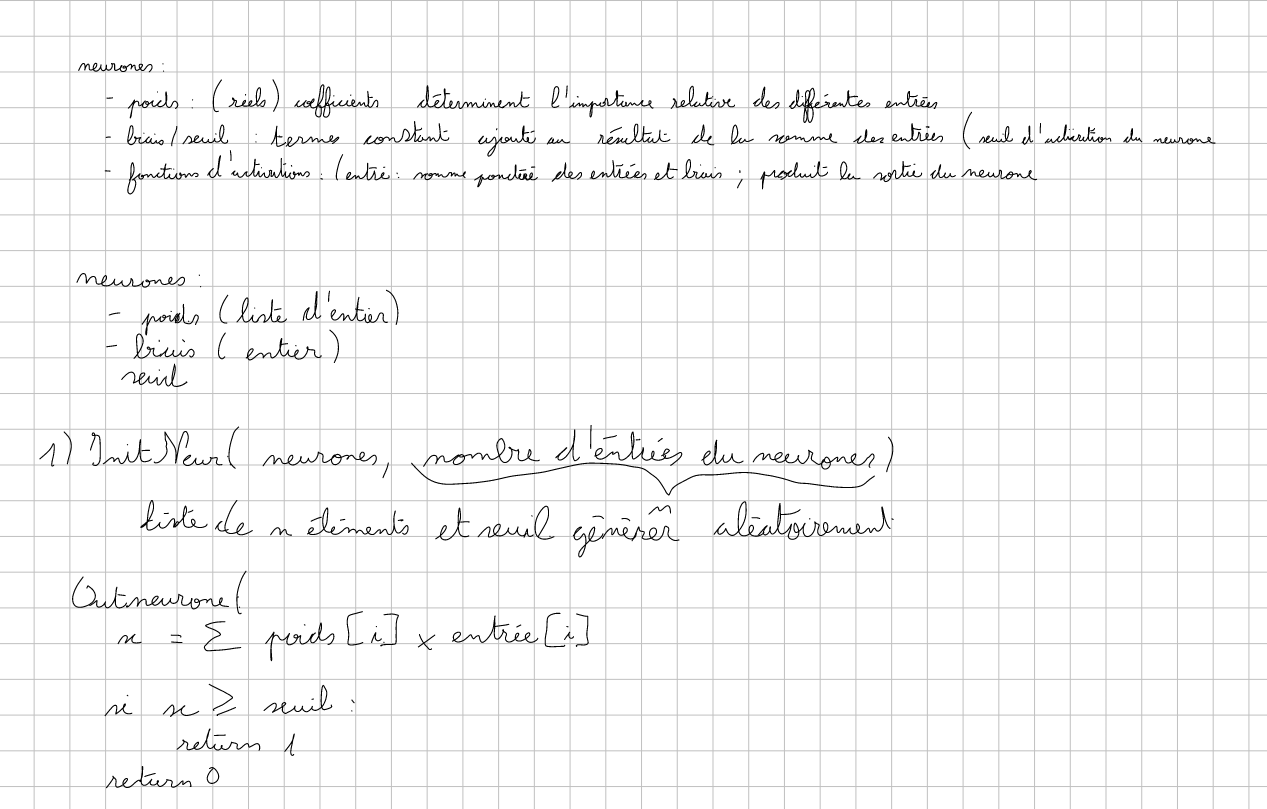 neurones :
- poids : (réels) coefficients déterminent l'importance relative des différentes entrées
- biais/seuil : termes constant ajouté au résultat de la somme des entrées (seuil d'activation du neurone
- fonctions d'activations : (entré : somme pondéré des entrées et biais ; produit la sortie du neurone
neurones :
- poids (liste d'entier)
- biais (entier)
seuil
1) InitNeur( neurones, nombre d'entrées du neurones)
liste de n éléments et seuil générer aléatoirement
n
Outneurone(
x = Σ poids[i] x entrée[i]
si x ⩾ seuil :
return 1
return 0